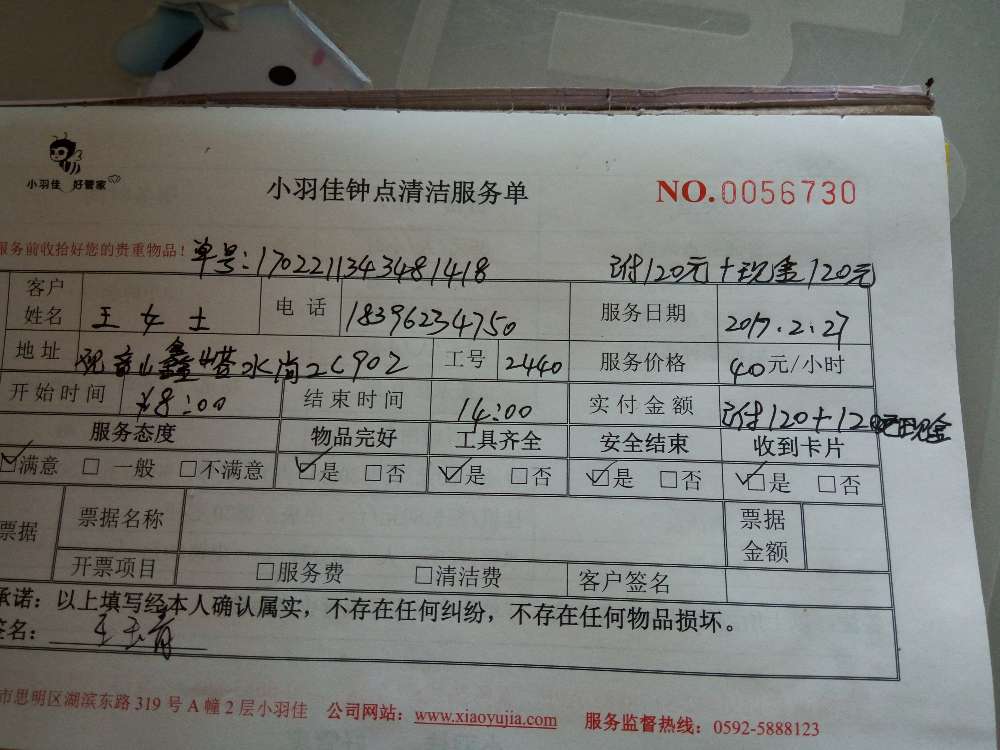 小羽佳 好管家
小羽佳钟点清洁服务单 NO.0056730
服务前收拾好您的贵重物品! 单号:1702211343481418 计付120元+现金120元
客户姓名 王女士 电话 18396234750 服务日期 2017.2.27
地址 观音山鑫塔水尚2C902 工号 2440 服务价格 40元/小时
开始时间 8:00 结束时间 14:00 实付金额 计付120+120元现金
服务态度 物品完好 工具齐全 安全结束 收到卡片
☑满意 □一般 □不满意 ☑是 □否 ☑是 □否 ☑是 □否 ☑是 □否
票据 票据名称 票据金额
开票项目 □服务费 □清洁费 客户签名
承诺:以上填写经本人确认属实,不存在任何纠纷,不存在任何物品损坏。
签名: 王玉青
市思明区湖滨东路319号A幢2层小羽佳 公司网站:www.xiaoyujia.com 服务监督热线:0592-5888123